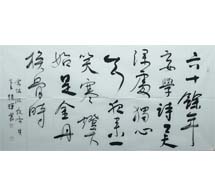 六十餘年
妄學詩工夫
深處獨心
知夜來一
笑寒燈下
始是金丹
換骨時